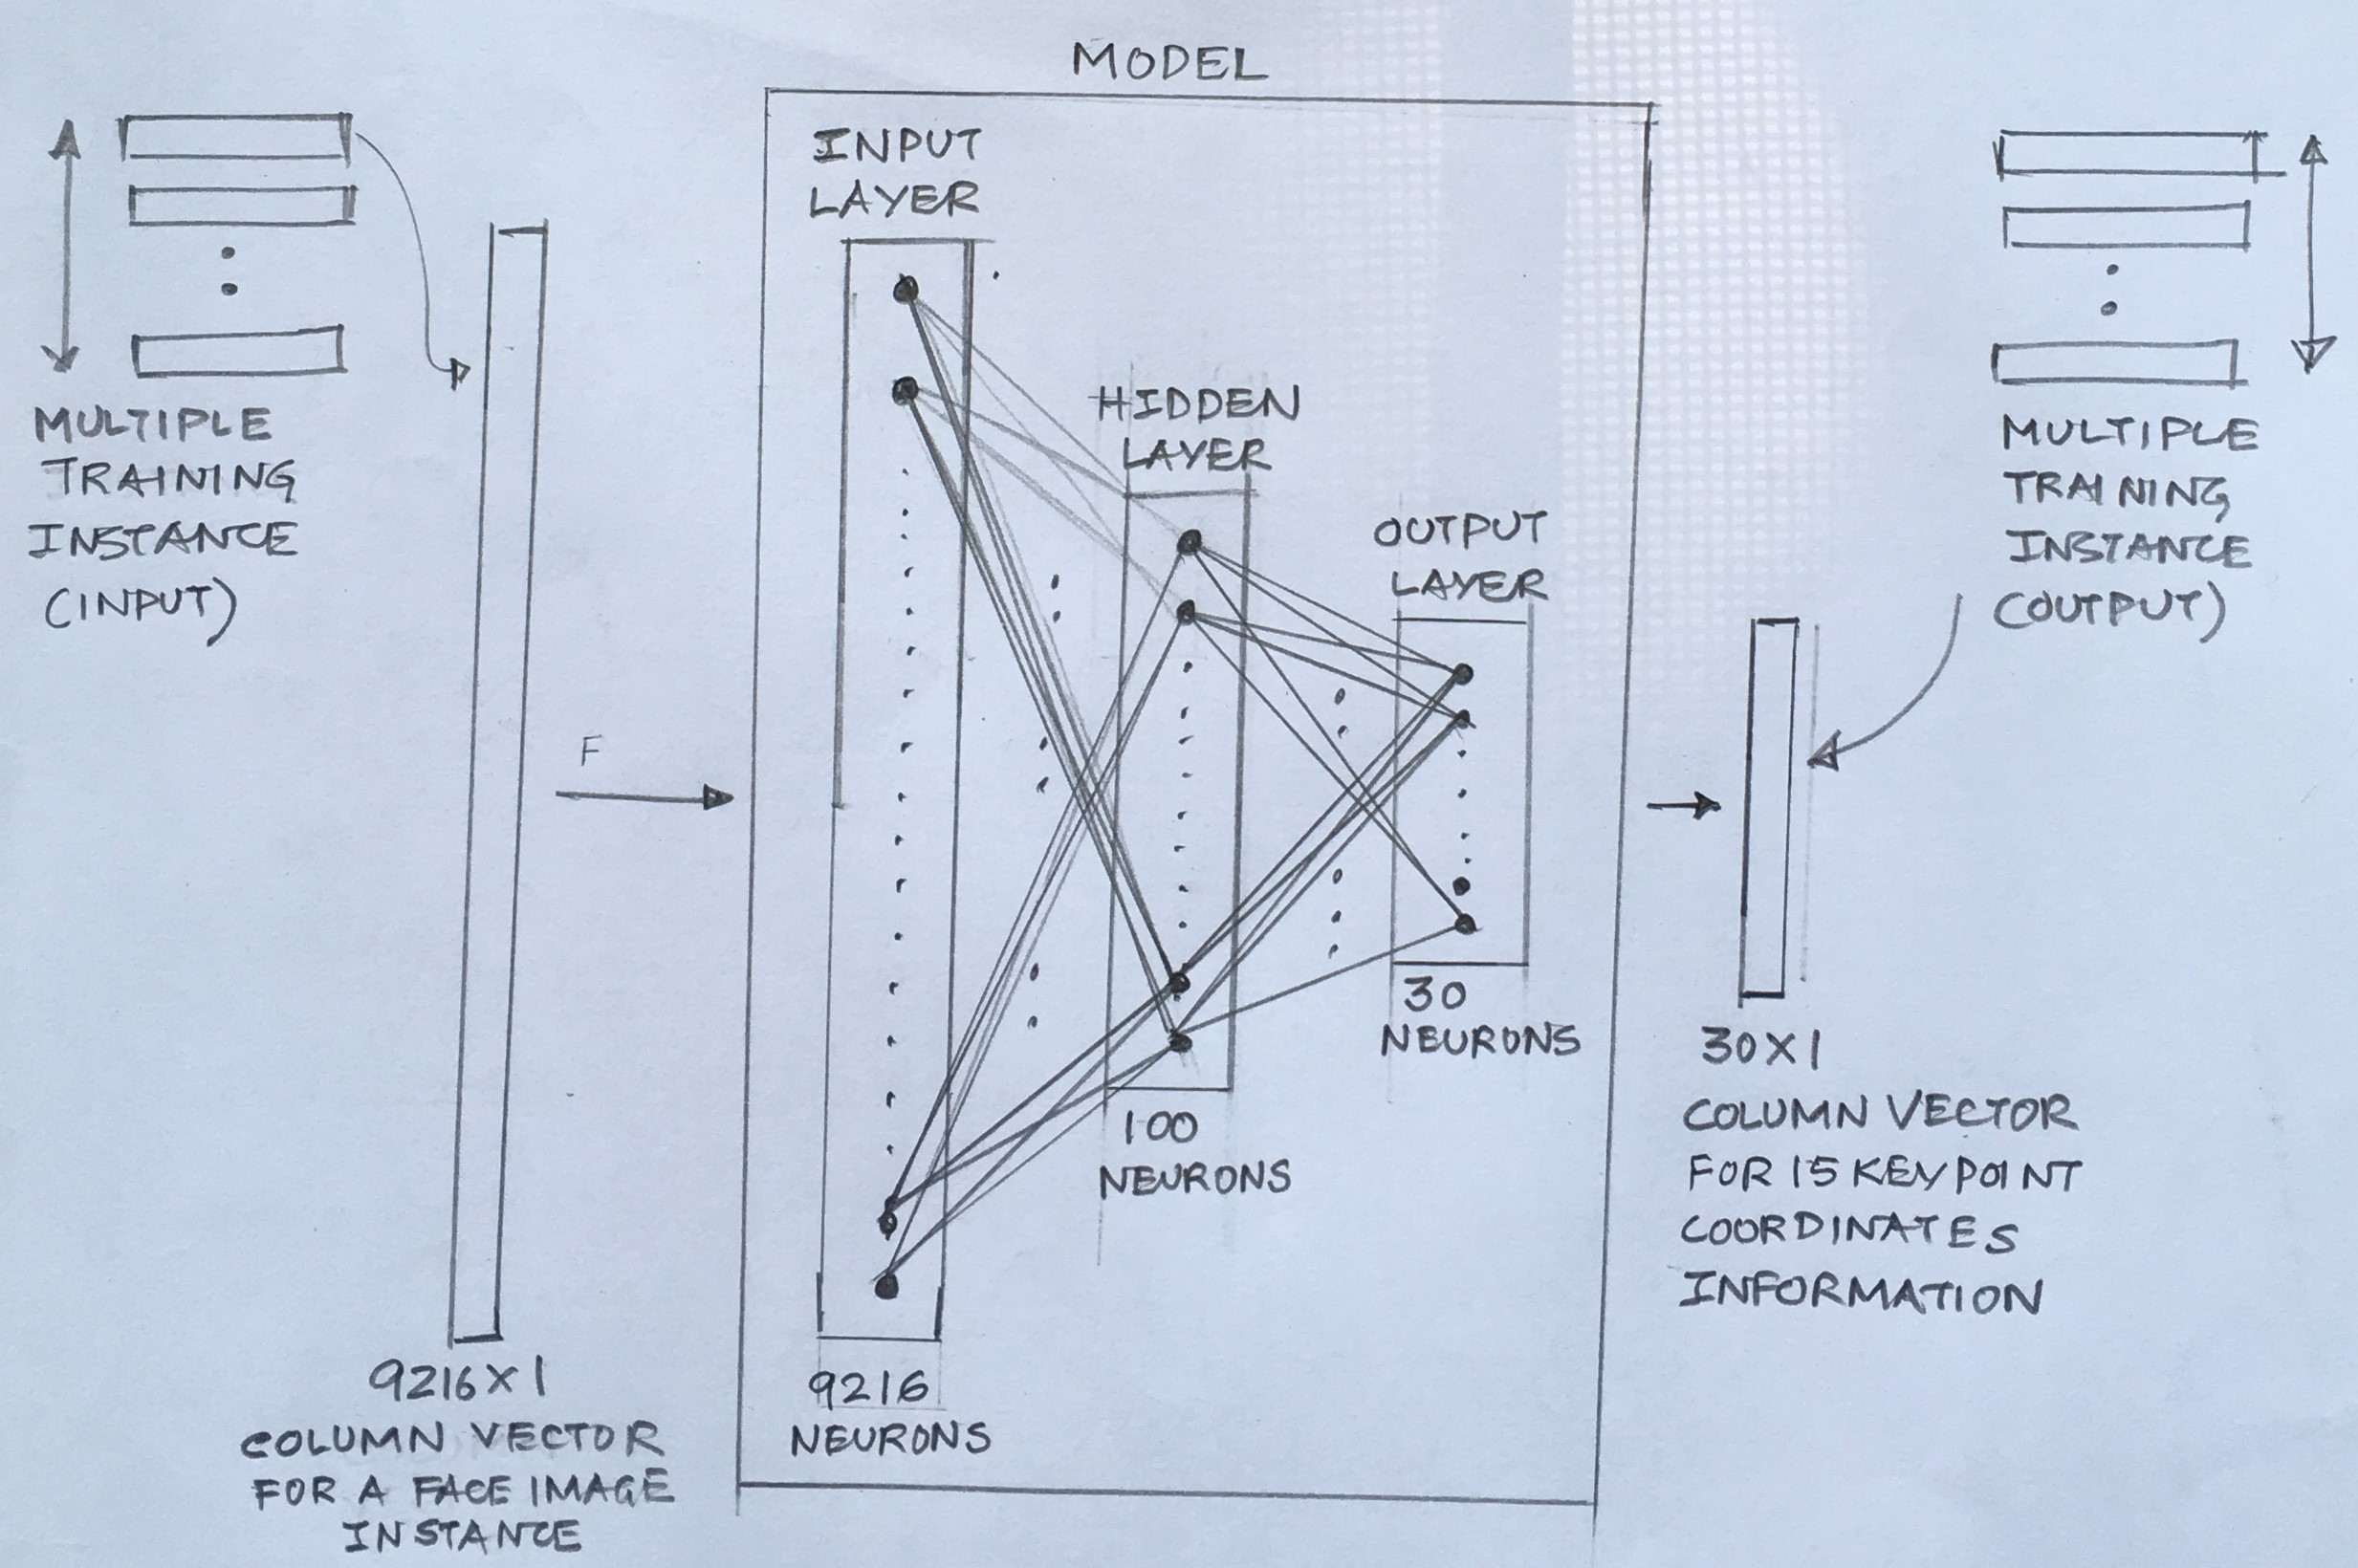 MODEL
MULTIPLE
TRAINING
INSTANCE
(INPUT)
9216 X 1
COLUMN VECTOR
FOR A FACE IMAGE
INSTANCE
F
INPUT
LAYER
9216
NEURONS
HIDDEN
LAYER
100
NEURONS
OUTPUT
LAYER
30
NEURONS
MULTIPLE
TRAINING
INSTANCE
(OUTPUT)
30 X 1
COLUMN VECTOR
FOR 15 KEYPOINT
COORDINATES
INFORMATION